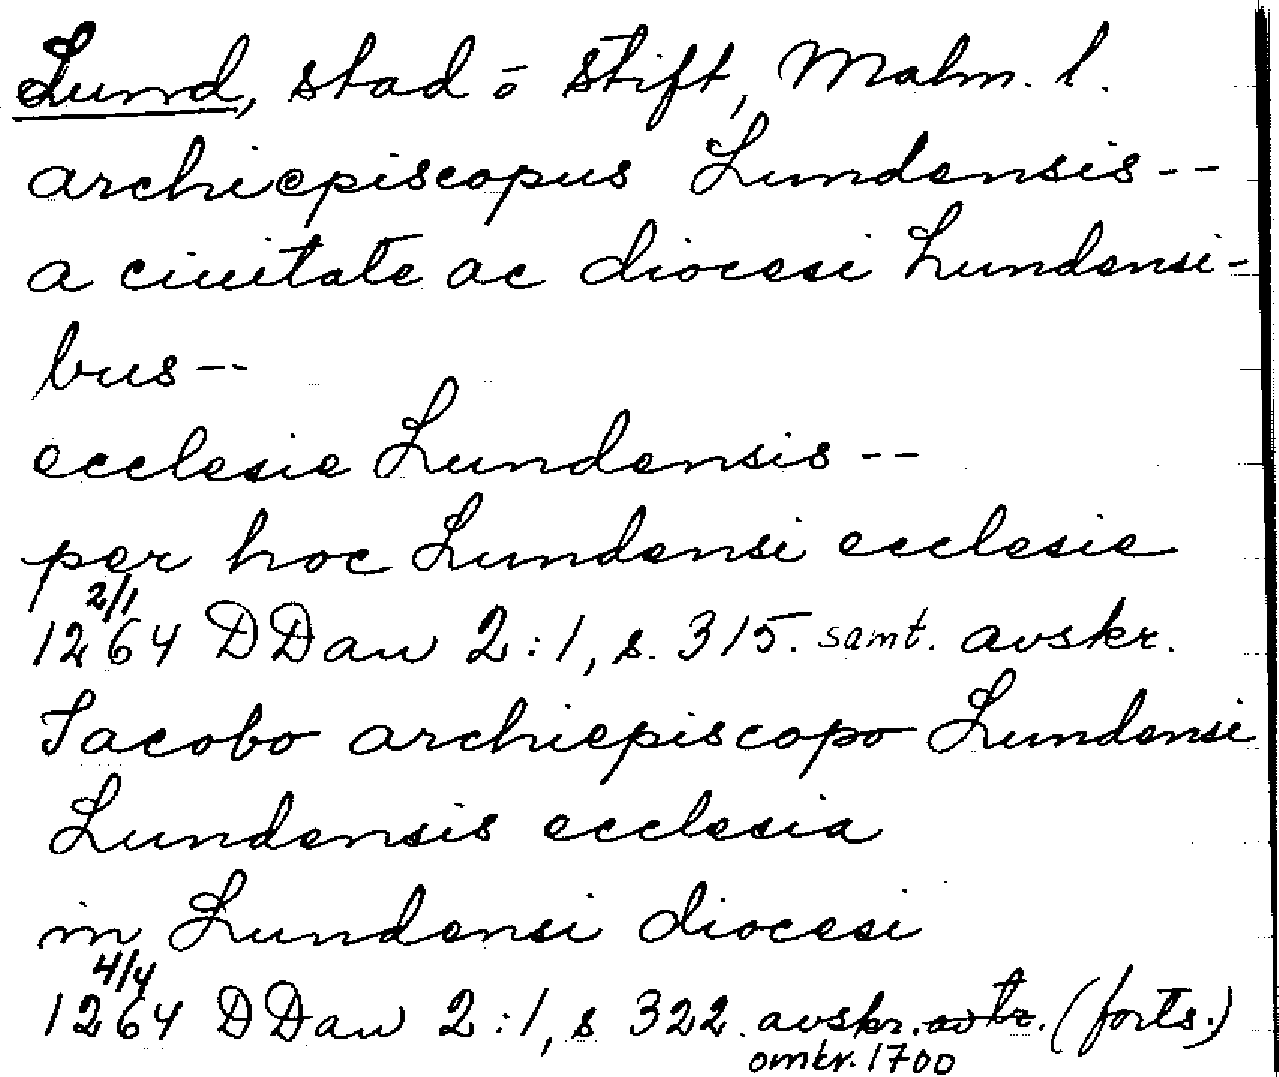 Lund, stad o stift, Malm. l.
archiepiscopus Lundensis--
a ciuitate ac diocesi Lundensi-
bus--
ecclesie Lundensis--
per hoc Lundensi ecclesie
2/1
1264 DDan 2:1, s. 315. samt. avskr.
Iacobo archiepiscopo Lundensi
Lundensis ecclesia
in Lundensi diocesi
4/4
1264 DDan 2:1, s 322. avskr. (forts.)
omkr. 1700